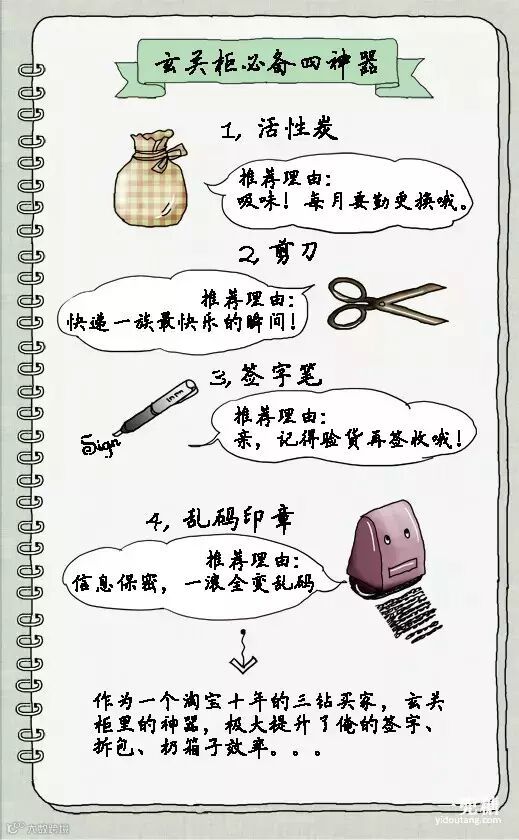 玄关柜必备四神器
1, 活性炭
推荐理由:
吸味! 每月要勤更换哦。
2, 剪刀
推荐理由:
快递一族最快乐的瞬间!
3, 签字笔
推荐理由:
亲, 记得验货再签收哦!
Sign
4, 乱码印章
推荐理由:
信息保密, 一滚全变乱码
作为一个淘宝十年的三钻买家, 玄关
柜里的神器, 极大提升了俺的签字、
拆包、扔箱子效率。。。
大数跨境
一兜糖
yidoutang.com